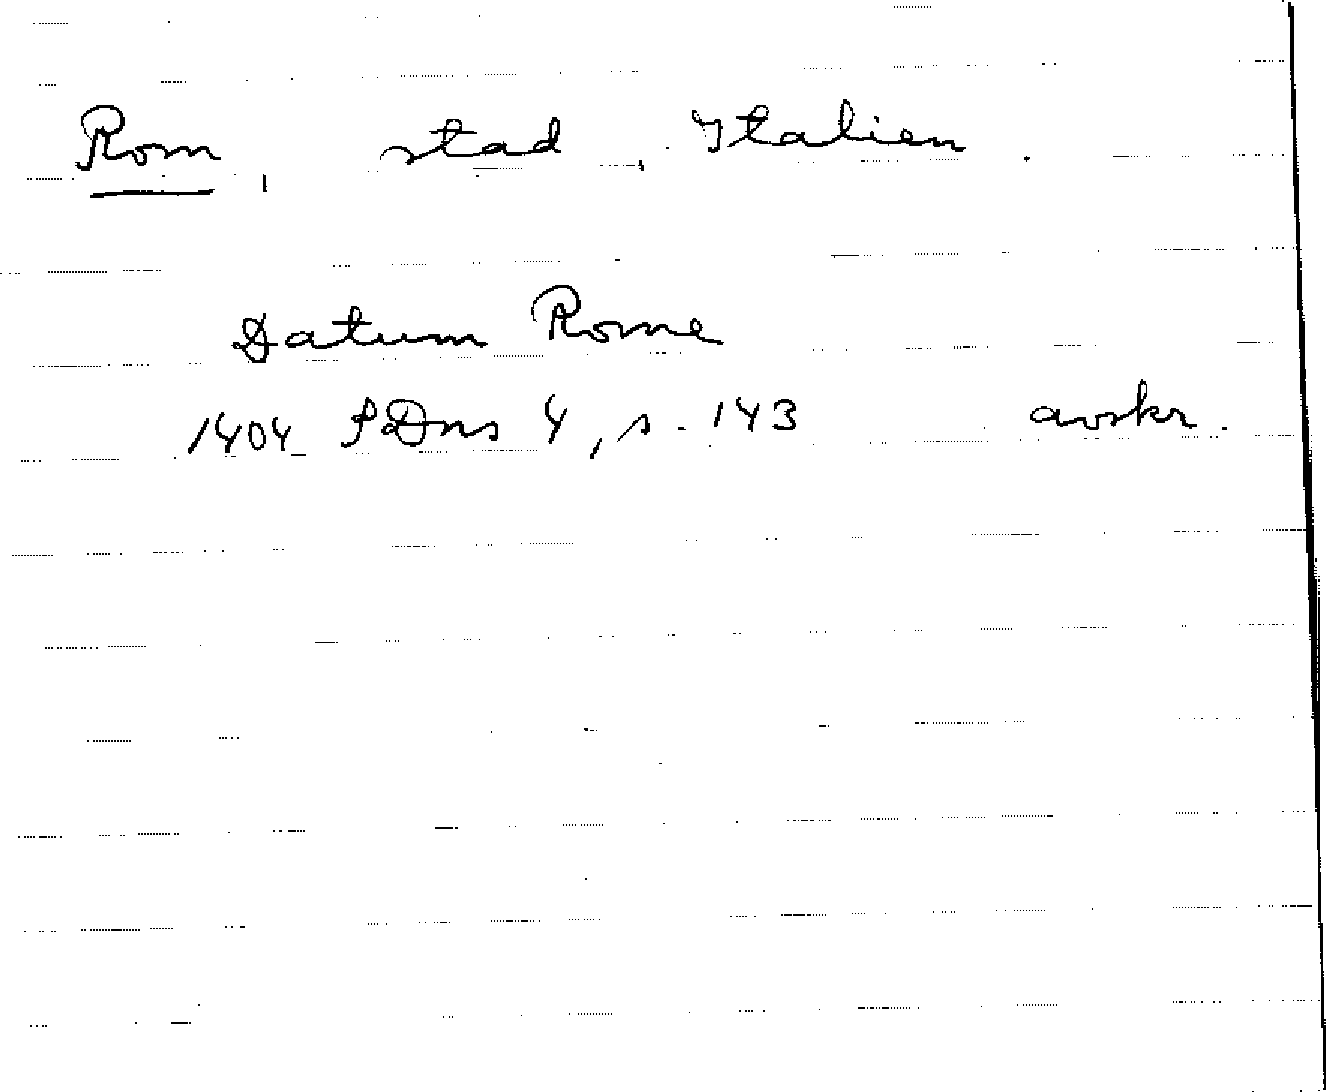 Rom, stad, Italien.
Datum Rome
1404 SDns 4, s. 143 avskr.